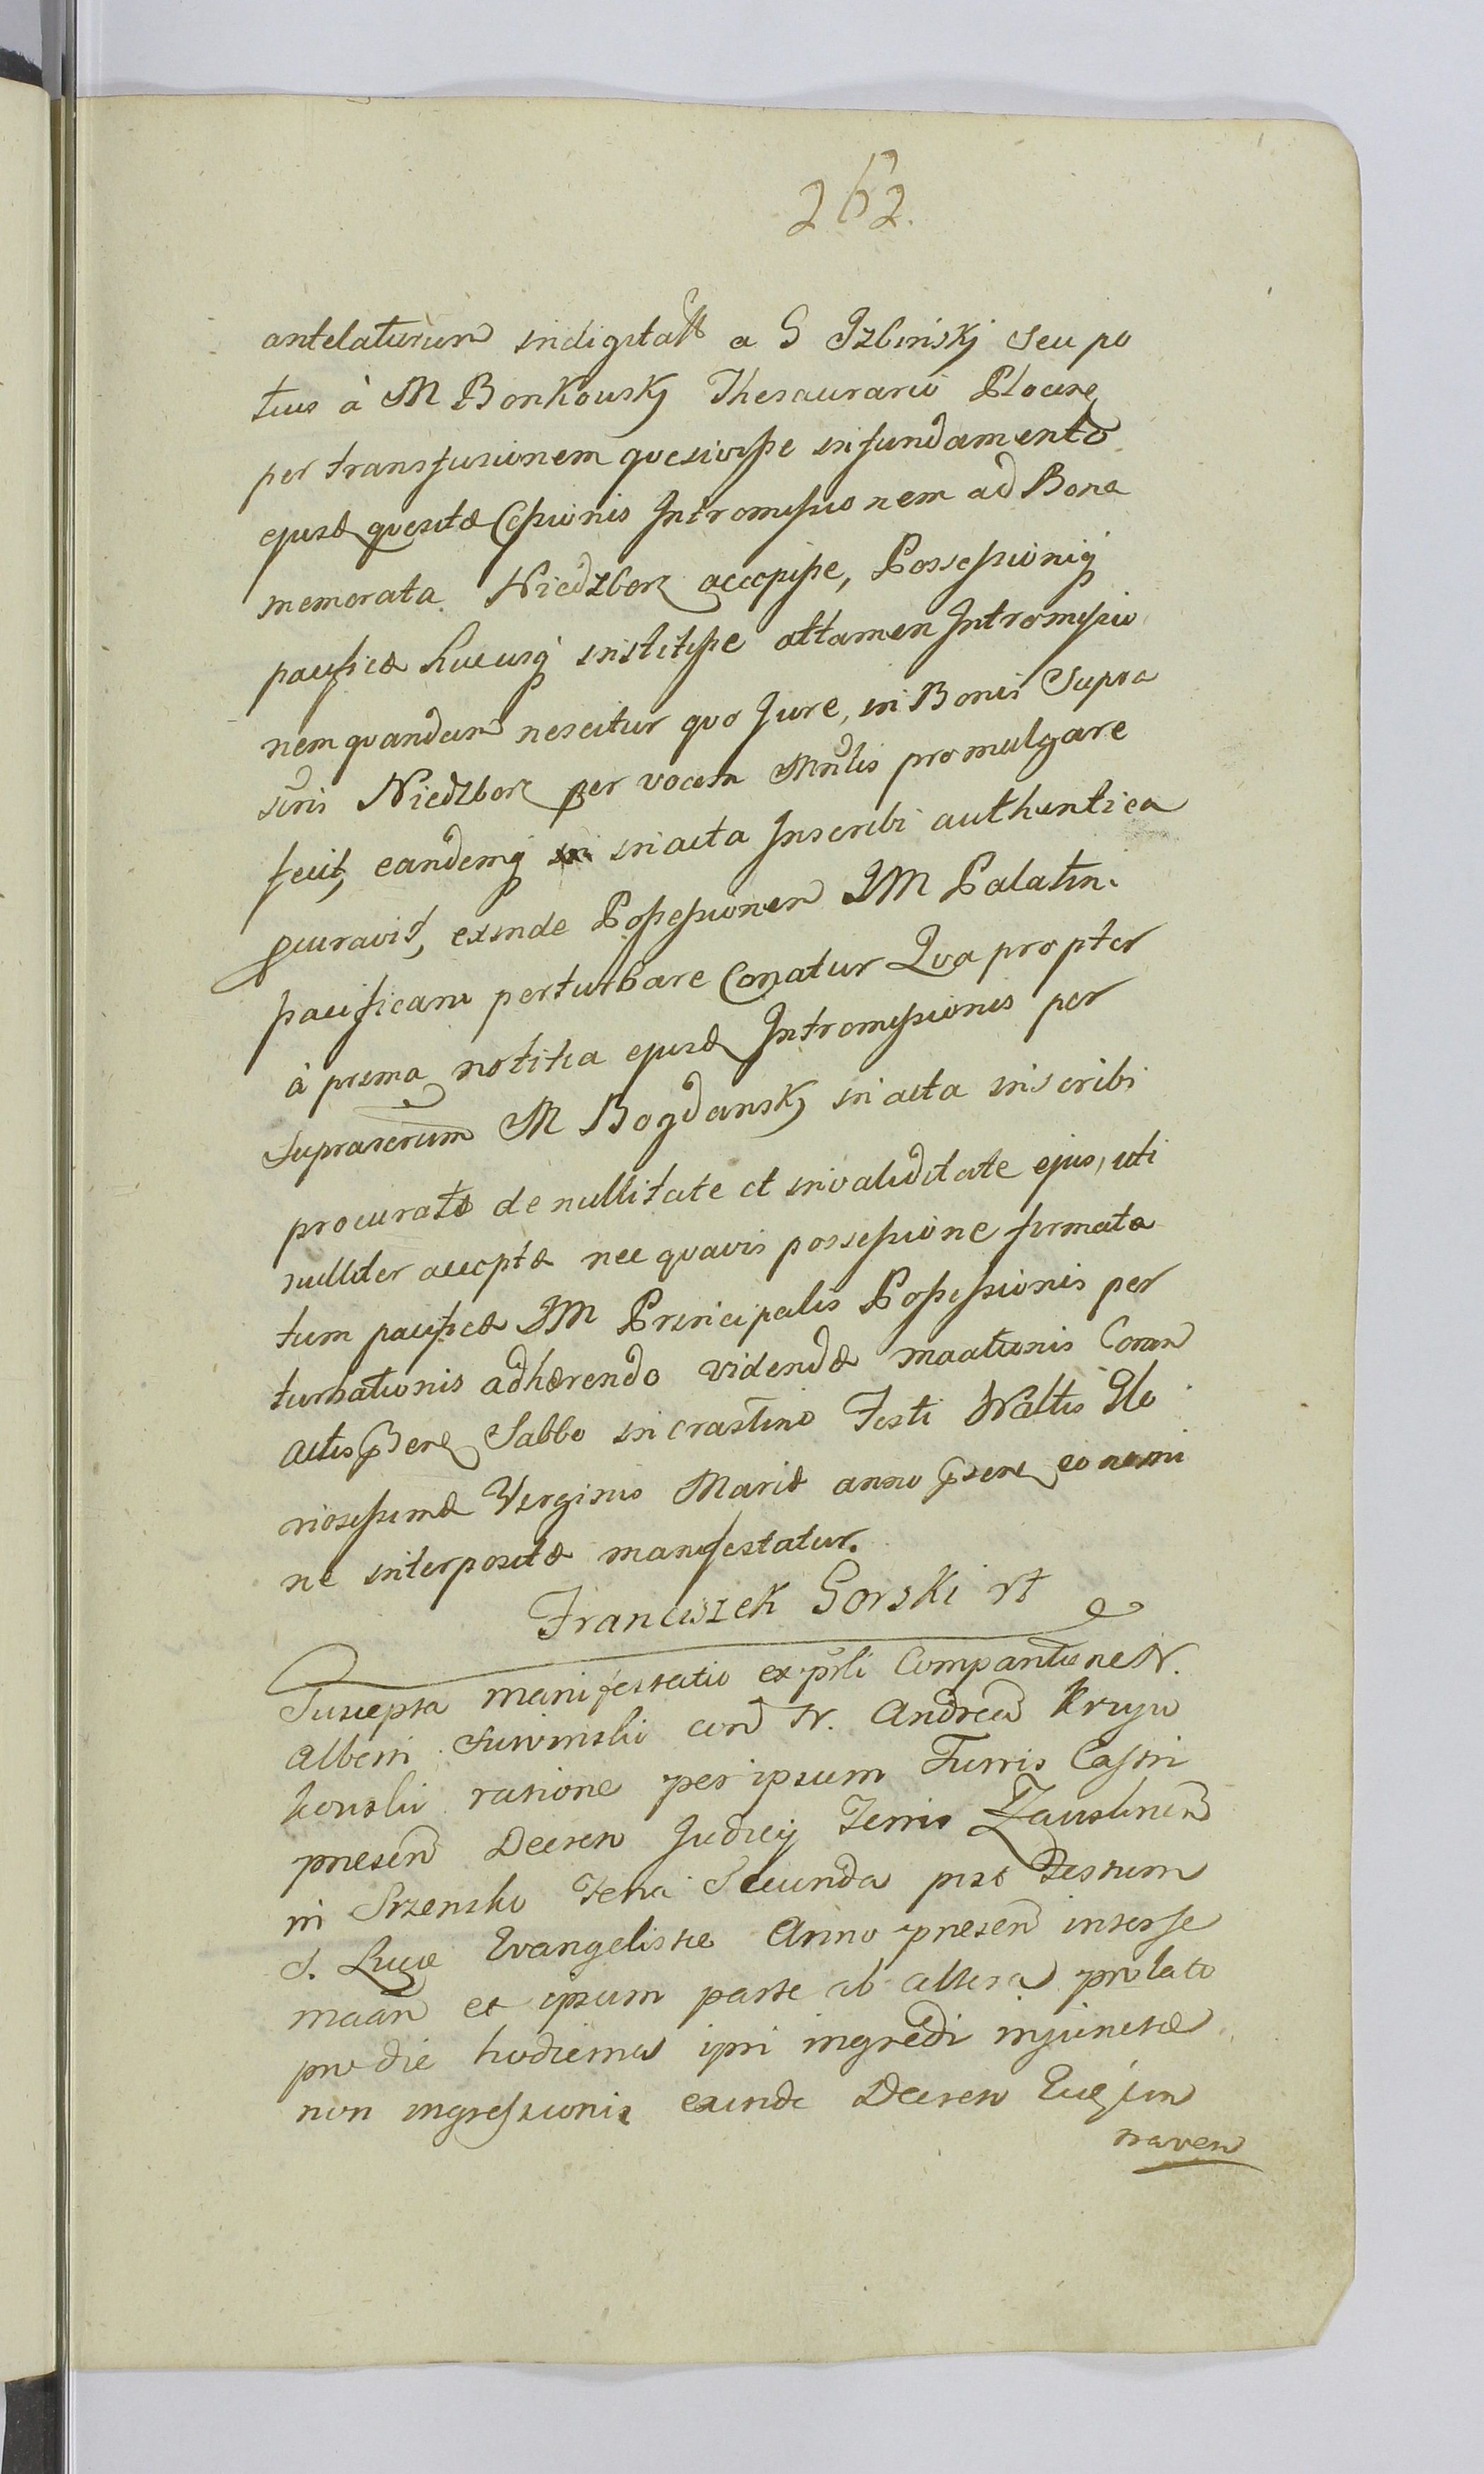 262.
antelaturum indigitatt a G Izbinskj seu po
tius à M Bonkouskj Thesaurario Plocen
per transfusionem quesivisse infundamento
ejusd quesitæ Cessionis Intromissionem ad Bona
memorata Niedzborz accepisse, Possessioniq
pacificæ hucusq institisse attamen Intromissio
nem quandam nescitur quo Jure, in Bonis Supra
scris Niedzborz per vocem Mnlis promulgare
fecit, eandemq in acta Inscribi authentica
pcuravit, exinde Possessionem JM Palatin.
pacificam perturbare Conatur Qva propter
à prima notitia ejusd Intromissionis per
suprascrum M Bogdanskj in acta inscribi
procuratæ de nullitate et invaliditate ejus, uti
nulliter acceptæ nec quavis possessione firmatæ
tum pacificæ JM Principalis Possessionis per
turbationis adhærendo videndæ maationis Coram
actis pren Sabbo in crastino Festi Naltis Glo
riosissimæ Virginis Mariæ anno psen eo nomi
ne interpositæ manifestatur.
Franciszek Gorski rt
Suscepta manifestatio ex psli Compantione N.
Alberti con N. Andream Krzyw
kouski ratione per ipsum Turris Castri
presen Decreto Judicij Terris Zauskrnen
in Srzensko Feria Secunda post Festum
S. Lucæ Evangelistæ Anno presen inter se
maan et ipsum parte ab altera prolato
pro die hodierna ipsi ingredi injunctæ
non ingressionis exinde Decreto